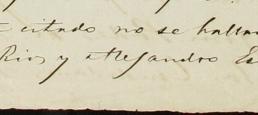 citado no se halla
Rios y Alejandro Es